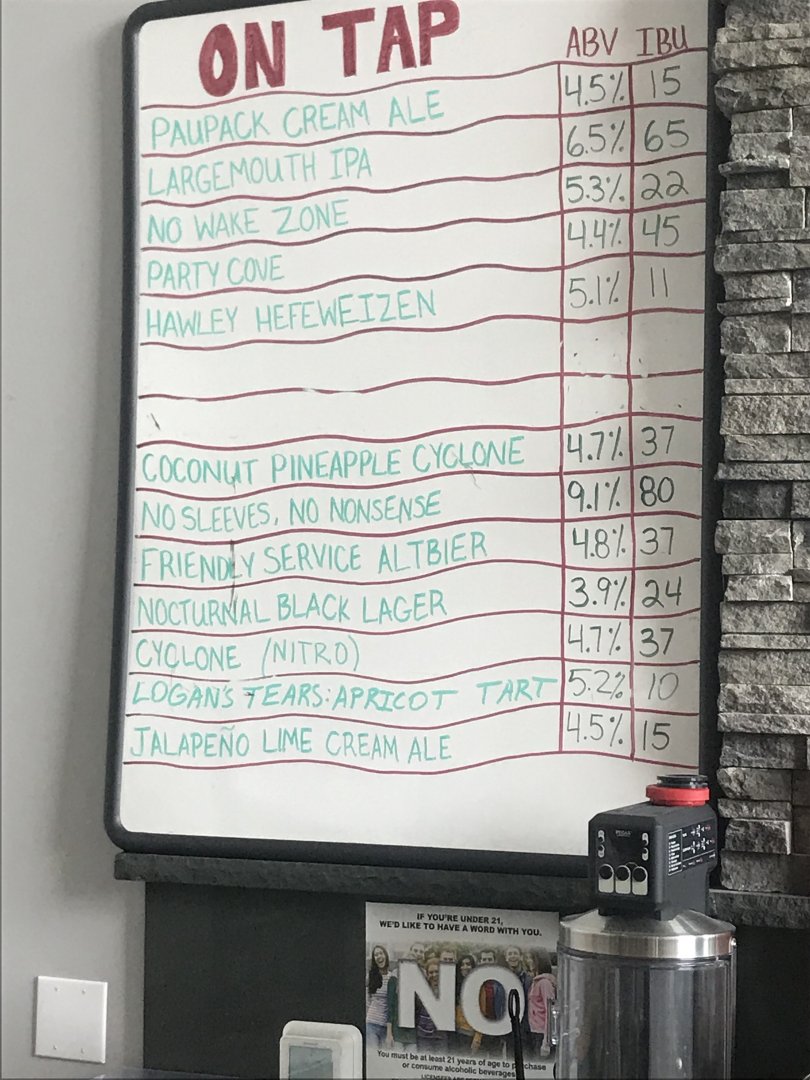 ON TAP ABV IBU
PAUPACK CREAM ALE 4.5% 15
LARGEMOUTH IPA 6.5% 65
NO WAKE ZONE 5.3% 22
PARTY COVE 4.4% 45
HAWLEY HEFEWEIZEN 5.1% 11
COCONUT PINEAPPLE CYCLONE 4.7% 37
NO SLEEVES, NO NONSENSE 9.1% 80
FRIENDLY SERVICE ALTBIER 4.8% 37
NOCTURNAL BLACK LAGER 3.9% 24
CYCLONE (NITRO) 4.7% 37
LOGAN'S TEARS: APRICOT TART 5.2% 10
JALAPEÑO LIME CREAM ALE 4.5% 15
IF YOU'RE UNDER 21,
WE'D LIKE TO HAVE A WORD WITH YOU.
NO
You must be at least 21 years of age to purchase
or consume alcoholic beverages